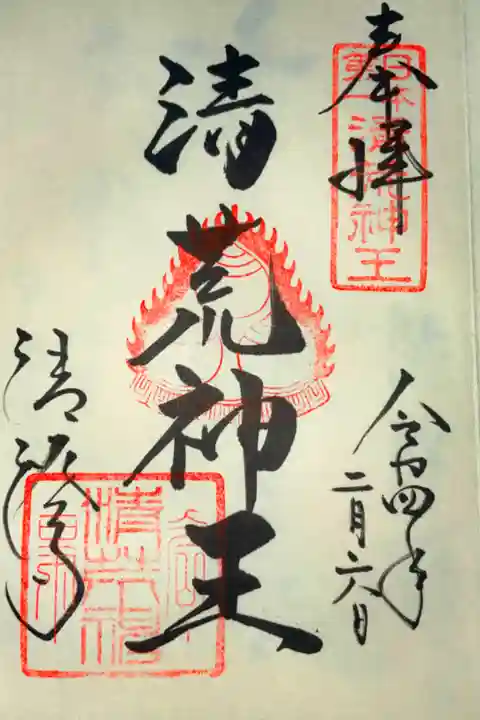 奉拝
日本第一清荒神王
令和四年
二月六日
清荒神王
清澄寺